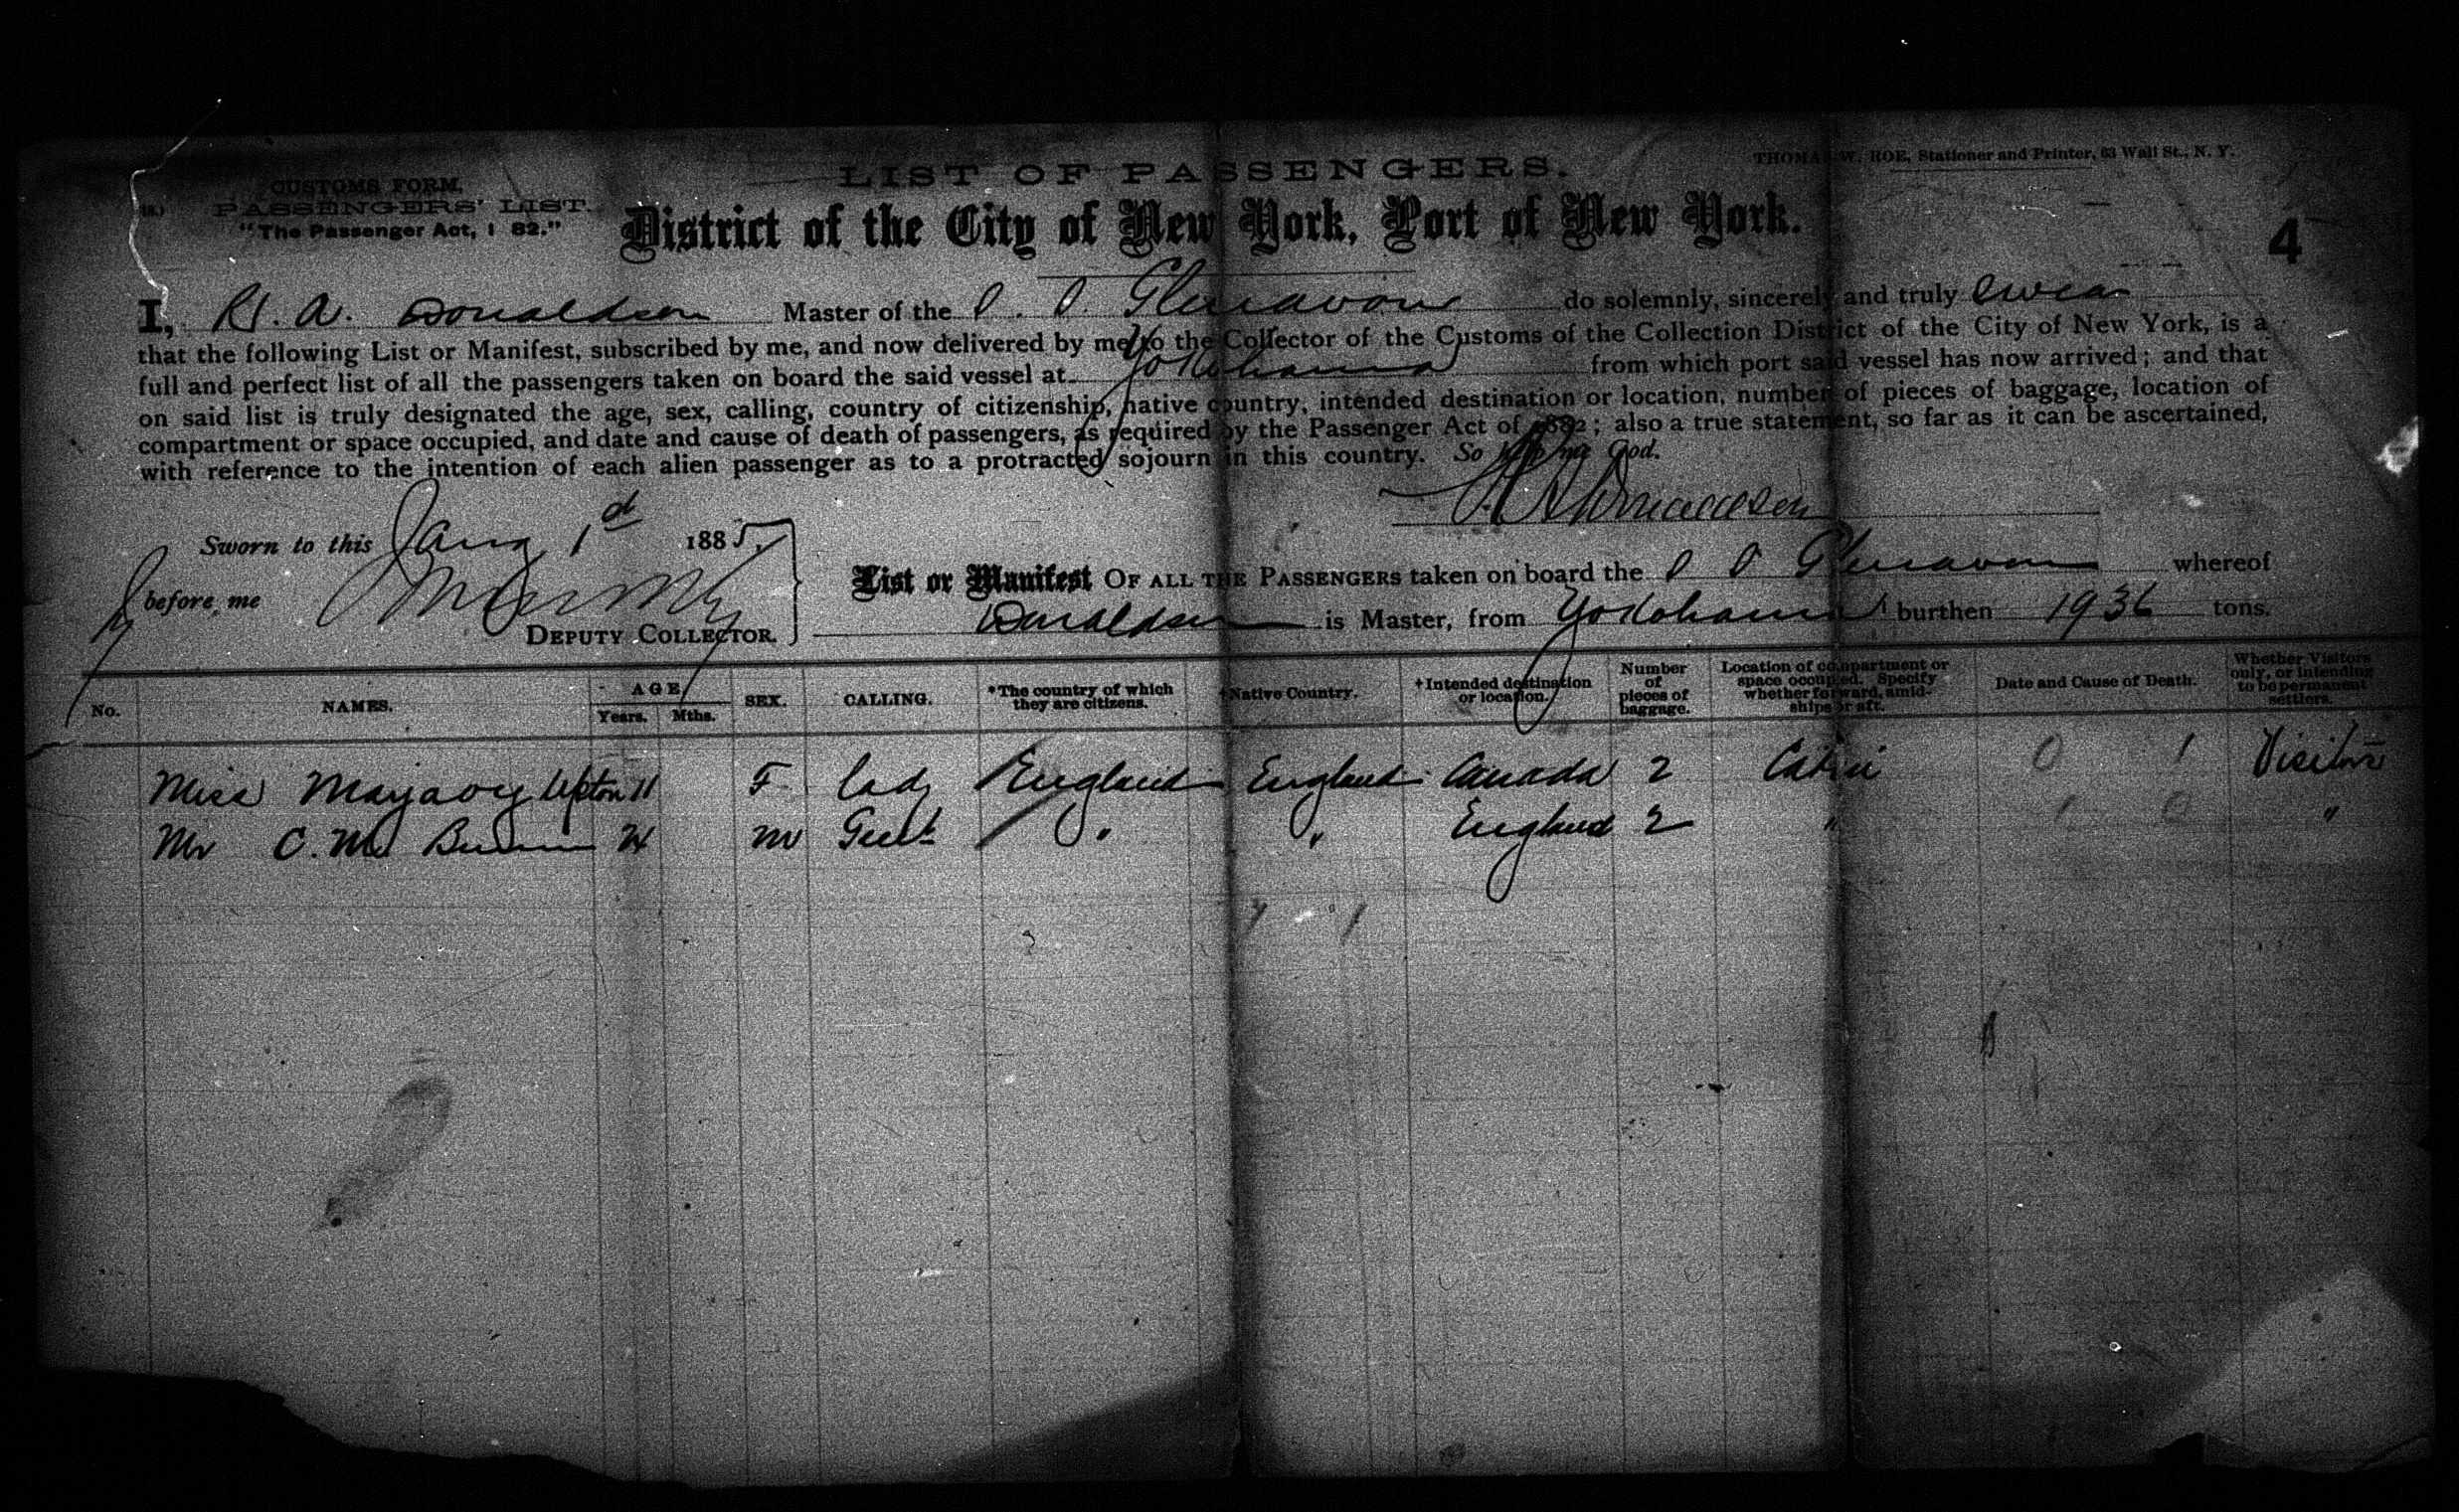 LIST OF PASSENGERS.
THOMAS W. ROE, Stationer and Printer, 63 Wall St., N. Y.
CUSTOMS FORM.
PASSENGERS' LIST.
"The Passenger Act, 1 82."
District of the City of New York, Port of New York.
4
I, H. A. Donaldson Master of the S. S. Glenavon do solemnly, sincerely and truly swear
that the following List or Manifest, subscribed by me, and now delivered by me to the Collector of the Customs of the Collection District of the City of New York, is a
full and perfect list of all the passengers taken on board the said vessel at Yokohama from which port said vessel has now arrived; and that
on said list is truly designated the age, sex, calling, country of citizenship, native country, intended destination or location, number of pieces of baggage, location of
compartment or space occupied, and date and cause of death of passengers, as required by the Passenger Act of 1882; also a true statement, so far as it can be ascertained,
with reference to the intention of each alien passenger as to a protracted sojourn in this country. So help me God.
H A Donaldson
Sworn to this Jany 1d 1885,
before me
DEPUTY COLLECTOR.
List or Manifest OF ALL THE PASSENGERS taken on board the S S Glenavon whereof
Donaldson is Master, from Yokohama burthen 1936 tons.
No. NAMES. AGE Years. Mths. SEX. CALLING. *The country of which they are citizens. †Native Country. †Intended destination or location. Number of pieces of baggage. Location of compartment or space occupied. Specify whether forward, amidships or aft. Date and Cause of Death. Whether Visitors only, or intending to be permanent settlers.
Miss Marjaory Upton 11 F lady England England Canada 2 Cabin 0 1 Visitors
Mr C. M. 24 M Gent " " England 2 " 1 0 "